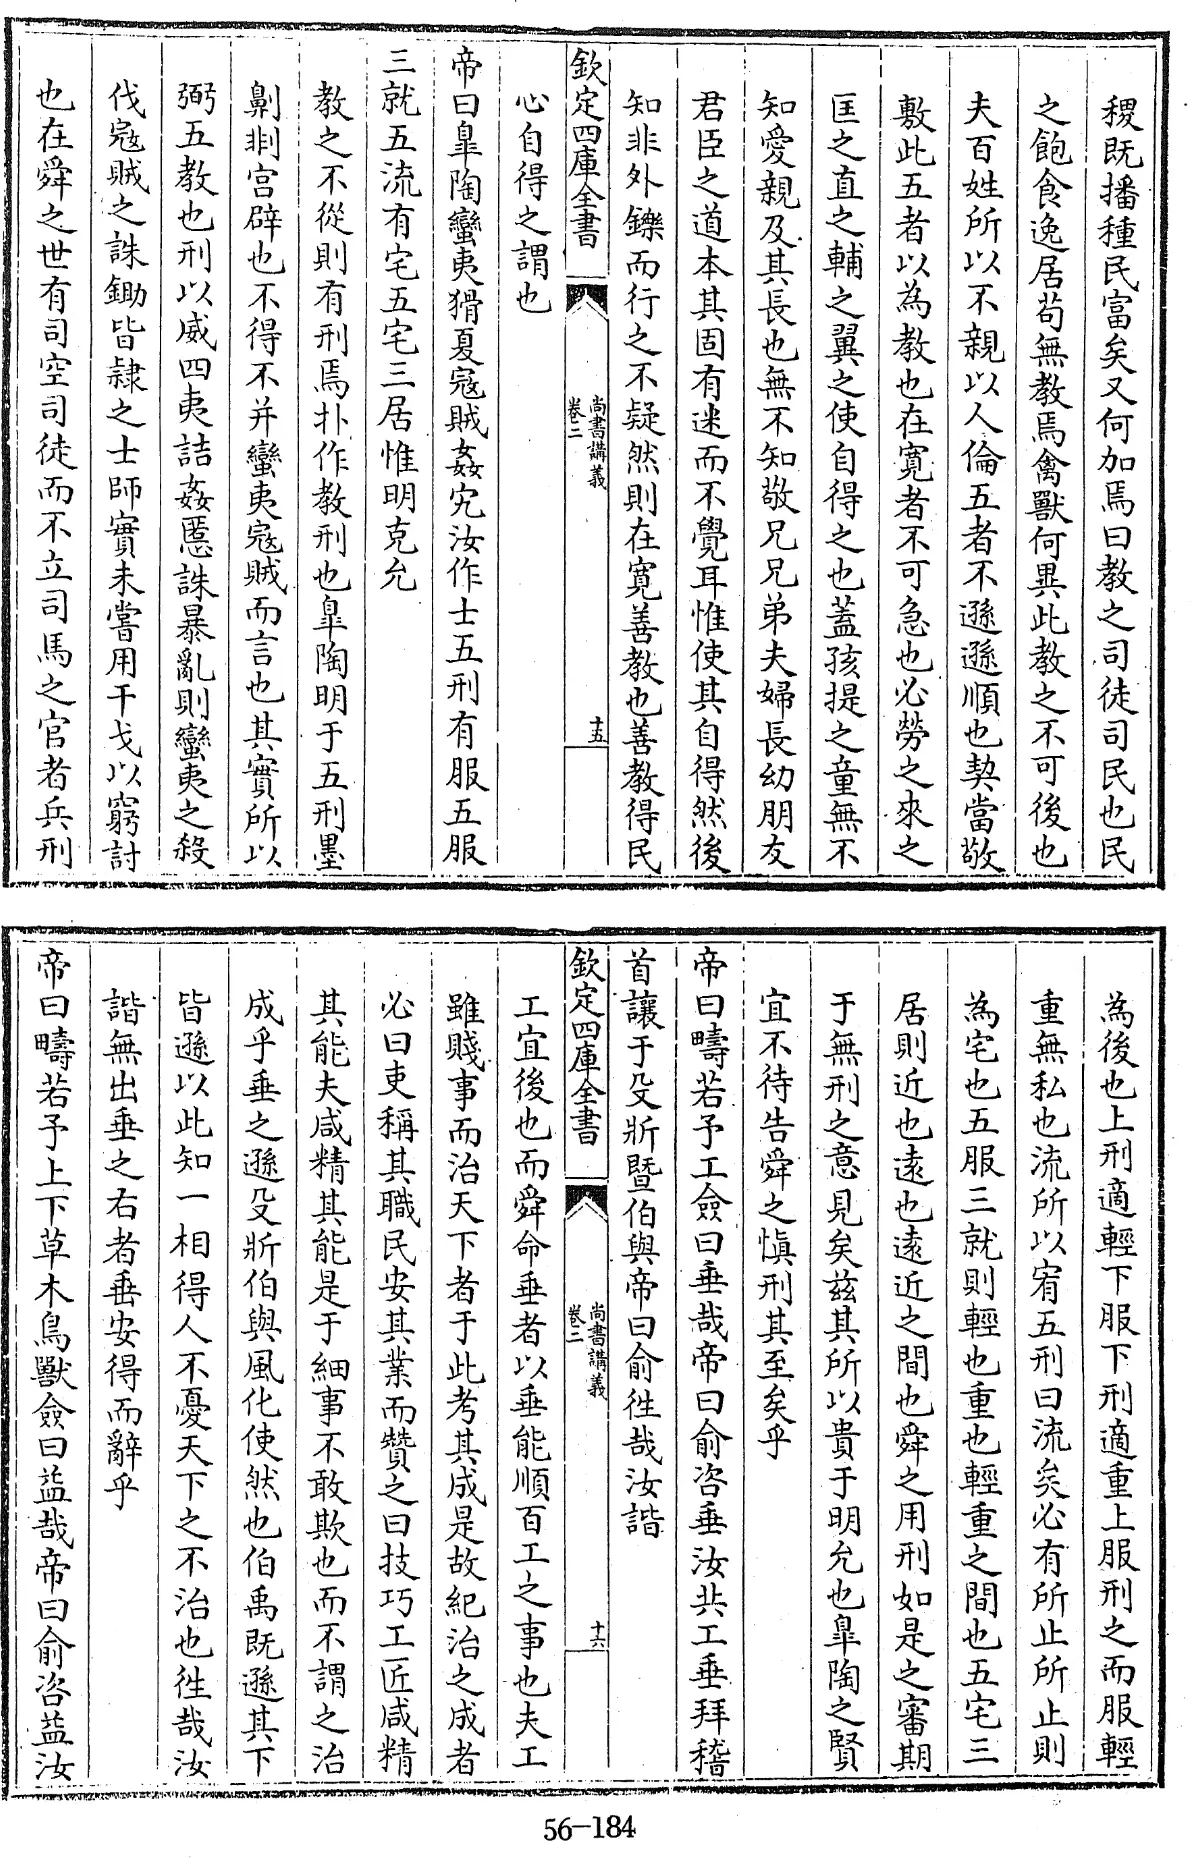 稷既播種民富矣又何加焉曰教之司徒司民也民
之飽食逸居苟無教焉禽獸何異此教之不可後也
夫百姓所以不親以人倫五者不遜遜順也契當敬
敷此五者以為教也在寛者不可急也必勞之來之
匡之直之輔之翼之使自得之也蓋孩提之童無不
知愛親及其長也無不知敬兄兄弟夫婦長幼朋友
君臣之道本其固有迷而不覺耳惟使其自得然後
知非外鑠而行之不疑然則在寛善教也善教得民
欽定四庫全書
尚書講義
卷二
十五
心自得之謂也
帝曰臯陶蠻夷猾夏寇賊姦宄汝作士五刑有服五服
三就五流有宅五宅三居惟明克允
教之不從則有刑焉扑作教刑也臯陶明于五刑墨
劓剕宫辟也不得不并蠻夷寇賊而言也其實所以
弼五教也刑以威四夷詰姦慝誅暴亂則蠻夷之殺
伐寇賊之誅鋤皆隷之士師實未嘗用干戈以窮討
也在舜之世有司空司徒而不立司馬之官者兵刑
為後也上刑適輕下服下刑適重上服刑之而服輕
重無私也流所以宥五刑曰流矣必有所止所止則
為宅也五服三就則輕也重也輕重之間也五宅三
居則近也逺也逺近之間也舜之用刑如是之審期
于無刑之意見矣兹其所以貴于明允也臯陶之賢
宜不待告舜之慎刑其至矣乎
帝曰疇若予工僉曰垂哉帝曰俞咨垂汝共工垂拜稽
首讓于殳斨暨伯與帝曰俞徃哉汝諧
欽定四庫全書
尚書講義
卷二
十六
工宜後也而舜命垂者以垂能順百工之事也夫工
雖賤事而治天下者于此考其成是故紀治之成者
必曰吏稱其職民安其業而贊之曰技巧工匠咸精
其能夫咸精其能是于細事不敢欺也而不謂之治
成乎垂之遜殳斨伯與風化使然也伯禹既遜其下
皆遜以此知一相得人不憂天下之不治也徃哉汝
諧無出垂之右者垂安得而辭乎
帝曰疇若予上下草木鳥獸僉曰益哉帝曰俞咨益汝
56-184